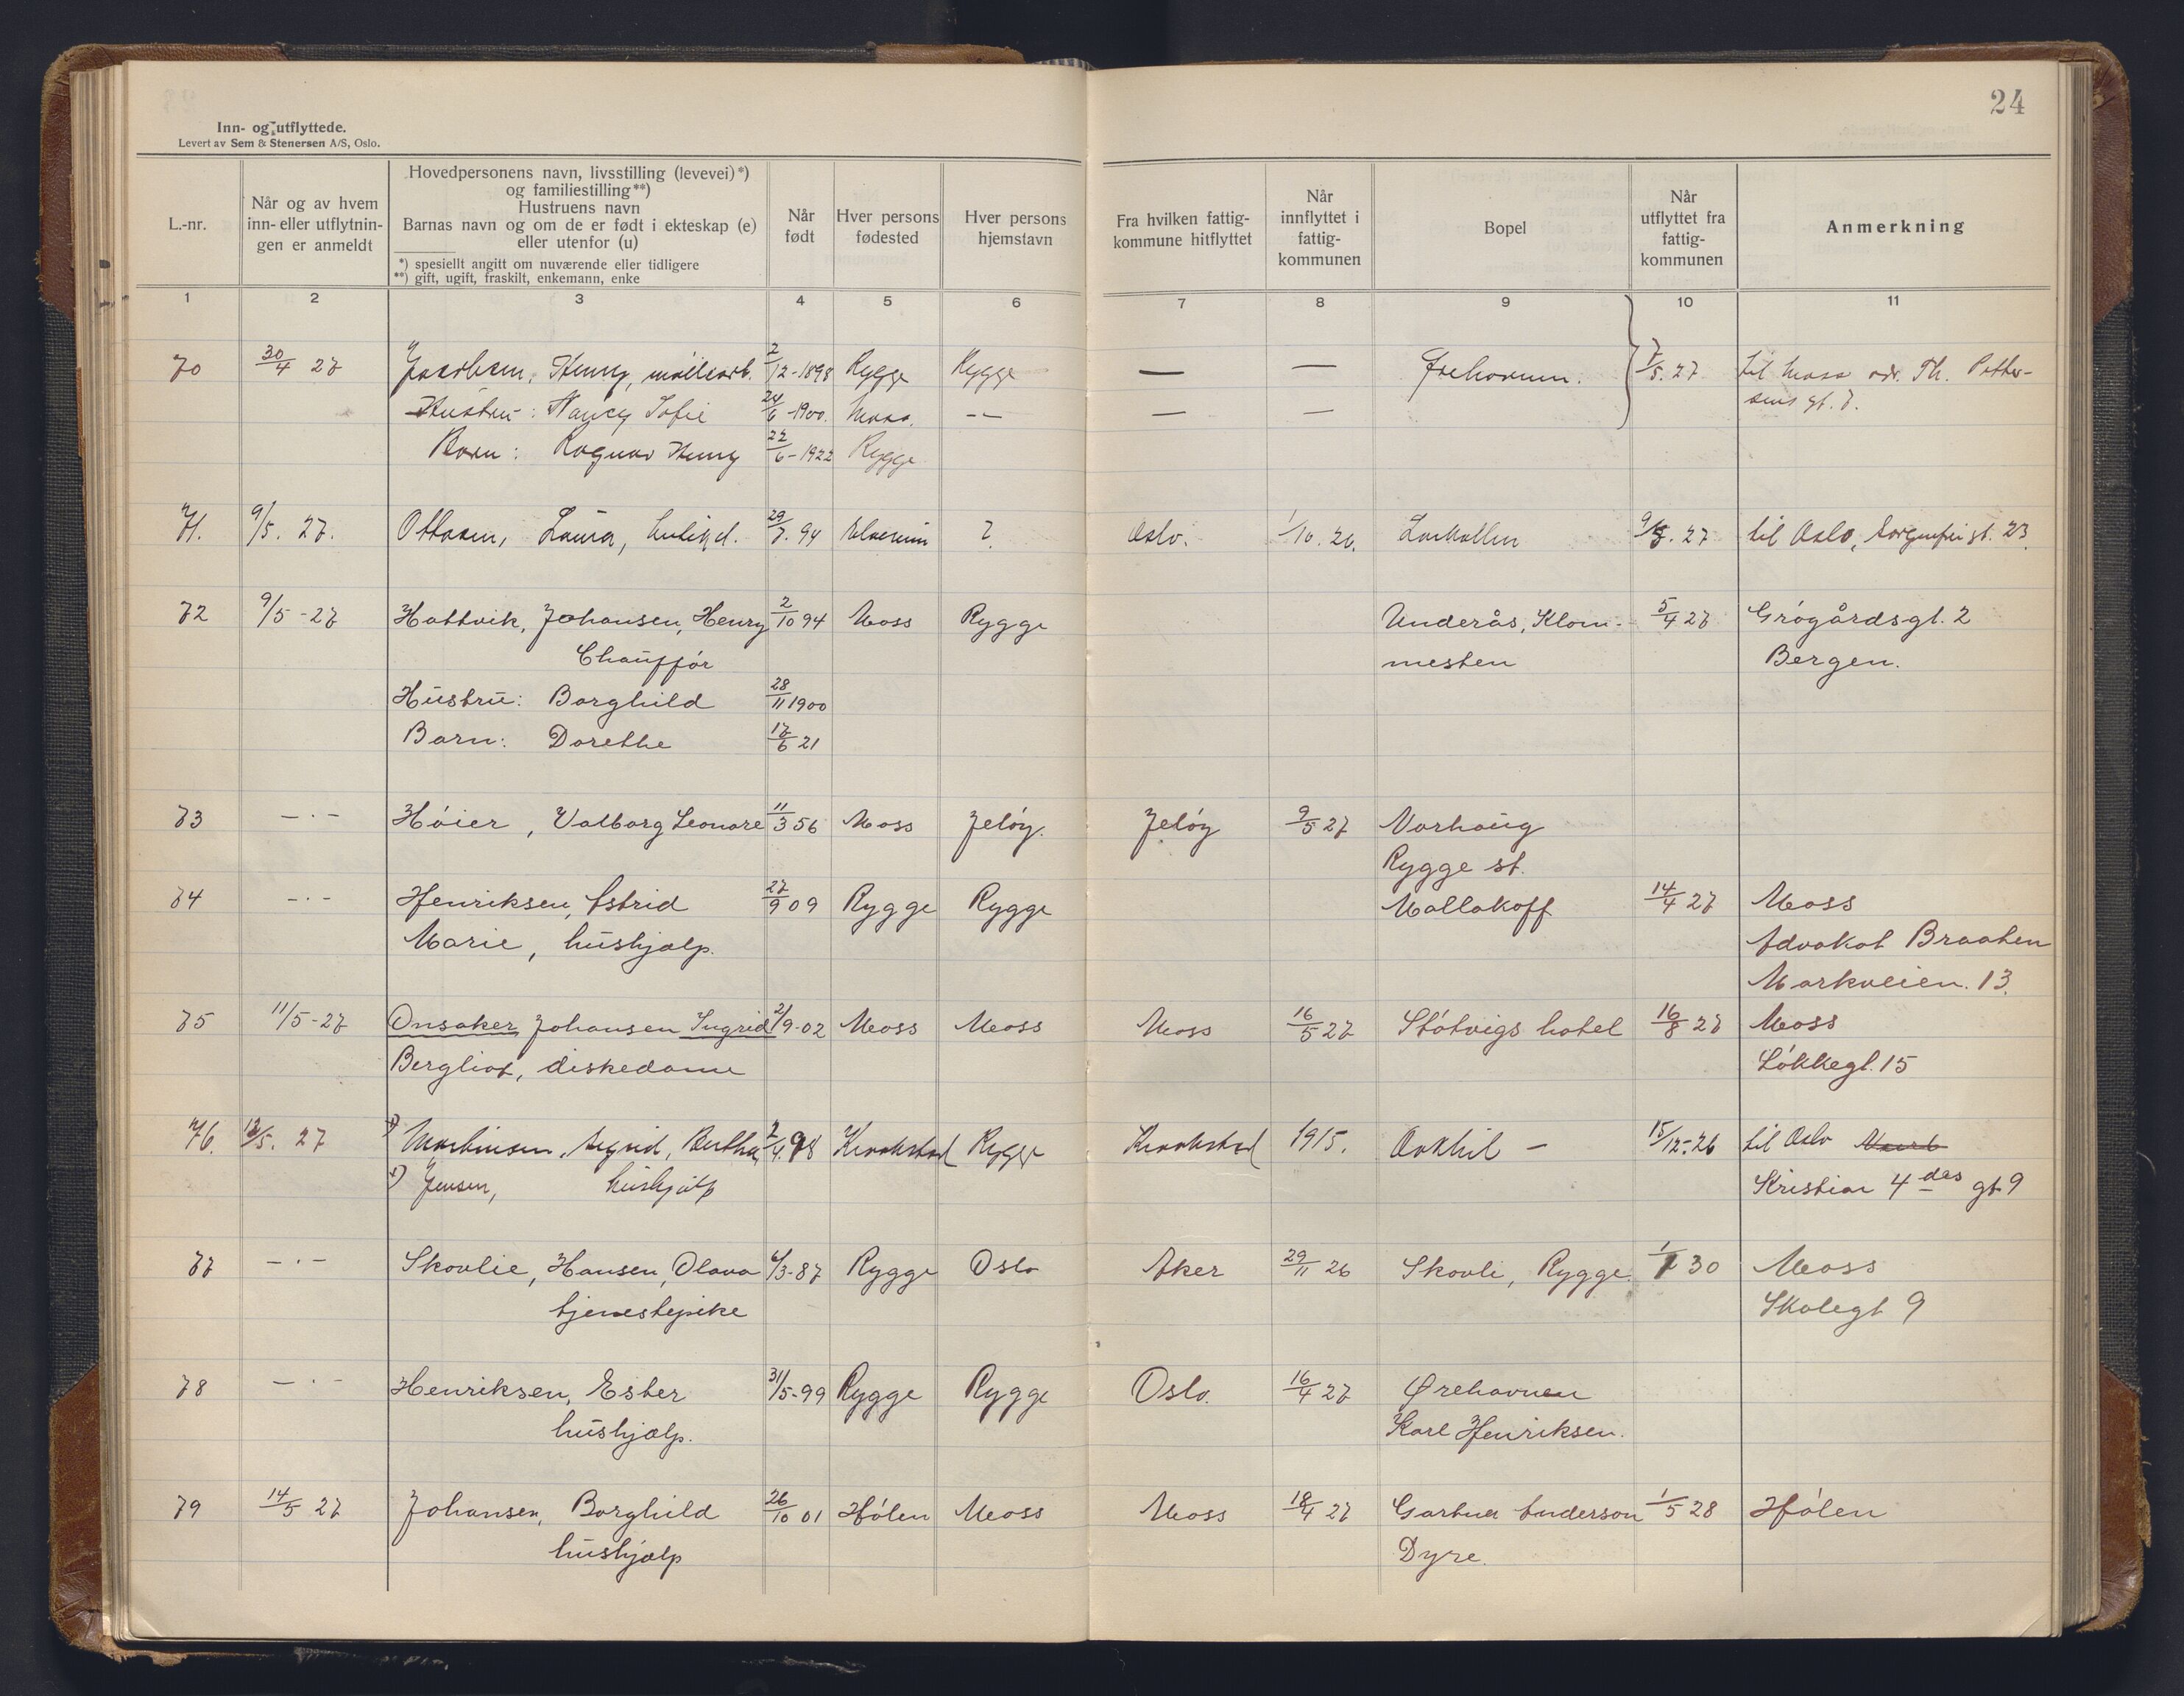 24
Inn- og utflyttede.
Levert av Sem & Stenersen A/S, Oslo.
L.-nr.
Når og av hvem
inn- eller utflytnin-
gen er anmeldt
Hovedpersonens navn, livsstilling (levevei)*)
og familiestilling**)
Hustruens navn
Barnas navn og om de er født i ekteskap (e)
eller utenfor (u)
*) spesiellt angitt om nuværende eller tidligere
**) gift, ugift, fraskilt, enkemann, enke
Når
født
Hver persons
fødested
Hver persons
hjemstavn
Fra hvilken fattig-
kommune hitflyttet
Når
innflyttet i
fattig-
kommunen
Bopel
Når
utflyttet fra
fattig-
kommunen
Anmerkning
1 2 3 4 5 6 7 8 9 10 11
70 30/4 27 Jacobsen, Henry, 2/12-1898 Rygge Rygge — — 27 til Moss adr. Th. Petter-
Hustru: Nancy Sofie 24/6-1900. Moss. -- — — sens gt. 7.
Barn: Ragnar Henry 22/6-1922 Rygge
71. 9/5. 27. Ottosen, Laura, 29/7. 94 ? Oslo. 1/10. 26. Larkollen 27 til Oslo, Sorgenfri gt. 23.
72 9/5-27 Hattvik, Johansen, Henry 2/10 94 Moss Rygge Underås, Klom- 5/4 27 Grógårdsgt. 2
Chauffór mesten Bergen.
Hustru: Borghild 28/11 1900
Barn: Dorethe 17/6 21
73 -·- Hóier, Valborg Leonore 11/3 56 Moss Jelóy. Jelóy 9/5 27 Varhaug
Rygge st.
74 -·- Henriksen, Astrid 27/9 09 Rygge Rygge Mallakoff 14/4 27 Moss
Marie, hushjælp. Advokat Braaten
Markveien. 13.
75 11/5-27 Onsaker, Johansen Ingrid 2/9-02 Moss Moss Moss 16/5 27 Stótvigs hotel 16/8 27 Moss
Bergliot, diskedame Lókkegt. 15
76. 27 Martinsen, Bertha, Rygge 1915. 15/12-26 til Oslo
Jensen, hushjælp Kristian 4 des gt 9
77 -·- Skovlie, Hansen, Olava 6/3-87 Rygge Oslo Aker 29/11 26 Skovli, Rygge. 30 Moss
tjenestepike Skolegt 9
78 -·- Henriksen, Ester 31/5-99 Rygge Rygge Oslo. 16/4 27 Ørehavnen
hushjælp. Karl Henriksen.
79 14/5 27 Johansen, Borghild 26/10 01 Hólen Moss Moss 18/4 27 Gartner Anderson 1/5 28 Hólen
hushjælp Dyre.